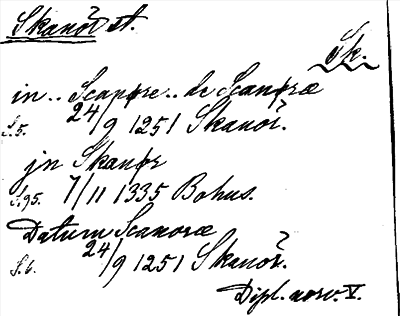 Skanör st.
Sk.
in .. Scanøre .. de Scanøræ
S. 5. 24/9 1251 Skanör.
jn Skanør
S. 95. 7/11 1335 Bohus.
Datum Scanoræ
S. 6. 24/9 1251 Skanör.
Dipl. norv. V.